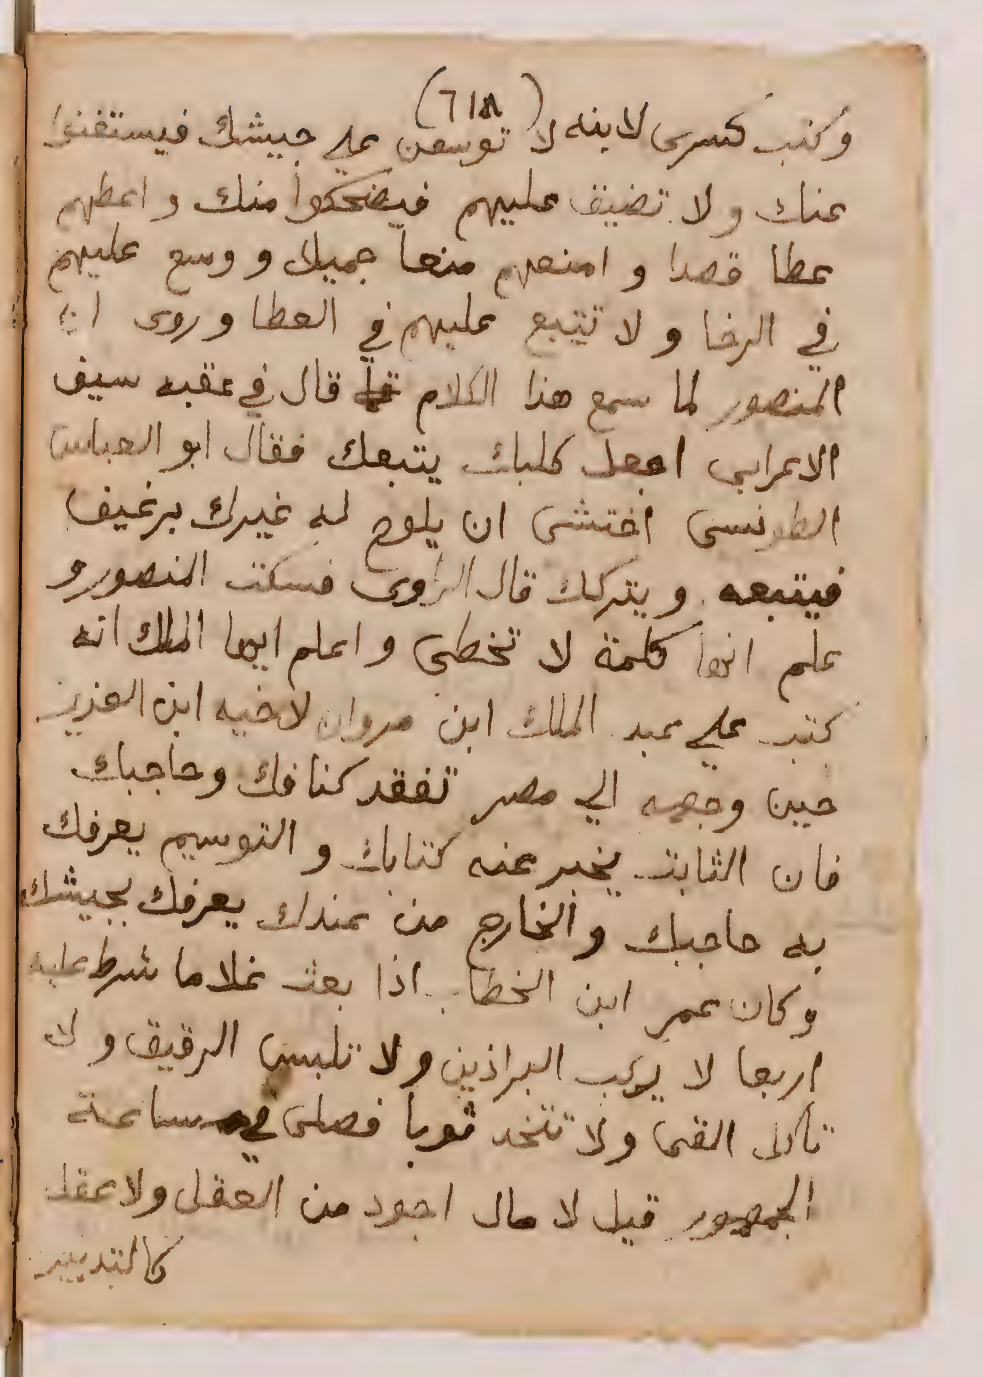 (٦١٨)
وكتب كسرى لابنه لا توسعن على جيشك فيستغنوا
عنك ولا تضيق عليهم فيضحكوا منك واعطهم
عطا قصدا و امنعهم منعا جميلا و وسع عليهم
في الرخا و لا تتبع عليهم في العطا وروى ان
المنصور لما سمع هذا الكلام قال في عقبه سيف
الاعرابي اجعل كلبك يتبعك فقال ابو العباس
الطونسى اختشى ان يلوح له غيرك برغيف
فيتبعه ويتركك قال الراوى فسكت المنصور و
علم انها كلمة لا تخطى و اعلم ايها الملك انه
كتب على عبد الملك ابن مروان لاخيه ابن العزيز
حين وجهه الى مصر تفقد كنافك وحاجبك
فان الثابت يخبر عنه كتابك و التوسيم يعرفك
به حاجبك والخارج من عندك يعرفك بجيشك
وكان عمر ابن الخطاب اذا بعث غلاما شرط عليه
اربعا لا يركب البراذين ولا تلبس الرقيق و لا
تاكل القما ولا تتخد ثوبا فصلى في ساعة
الجمهور قيل لا مال اجود من العقل ولا عقل
كالتدبير